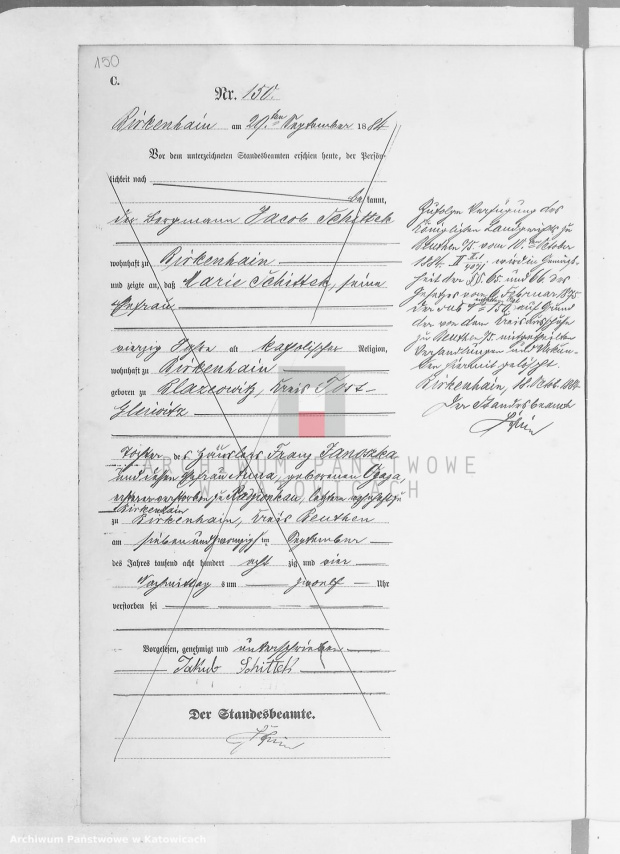 150
C.
Nr. 150.
Birkenhain am 29.ten September 1884
Vor dem unterzeichneten Standesbeamten erschien heute, der Persön-
lichkeit nach
be kannt,
der Bergmann Jacob Schittek
wohnhaft zu Birkenhain
und zeigte an, daß Marie Schittek, seine
Ehefrau
vierzig Jahre alt katholischer Religion,
wohnhaft zu Birkenhain
geboren zu Blazeowitz, Kreis Tost-
Gleiwitz
Tochter des Häuslers Franz Janoszka
und dessen Ehefrau Anna, geborenen
ersterer verstorben zu letztere wohnhaft zu
Birkenhain
zu Birkenhain, Kreis Beuthen
am sieben und zwanzigsten September
des Jahres tausend acht hundert acht zig und vier
Vormittags um zwoelf Uhr
verstorben sei
Vorgelesen, genehmigt und unterschrieben
Jakub Schittek
Der Standesbeamte.
Zufolge Verfügung des
Königlichen Landgerichts zu
Beuthen O/S. vom 10. October
1884. II wird in Gemäß-
heit der §§. 65. und 66. des
Gesetzes vom 6. Februar 1875
der sub № 150. auf Grund
der von dem Kreisausschusse
zu Beuthen O/S. mitgetheilten
Verhandlungen und Urkun-
den hiermit gelöscht
Birkenhain, Octbr. 1884
Der Standesbeamte
ARCHIWUM PAŃSTWOWE
W KATOWICACH
Archiwum Państwowe w Katowicach